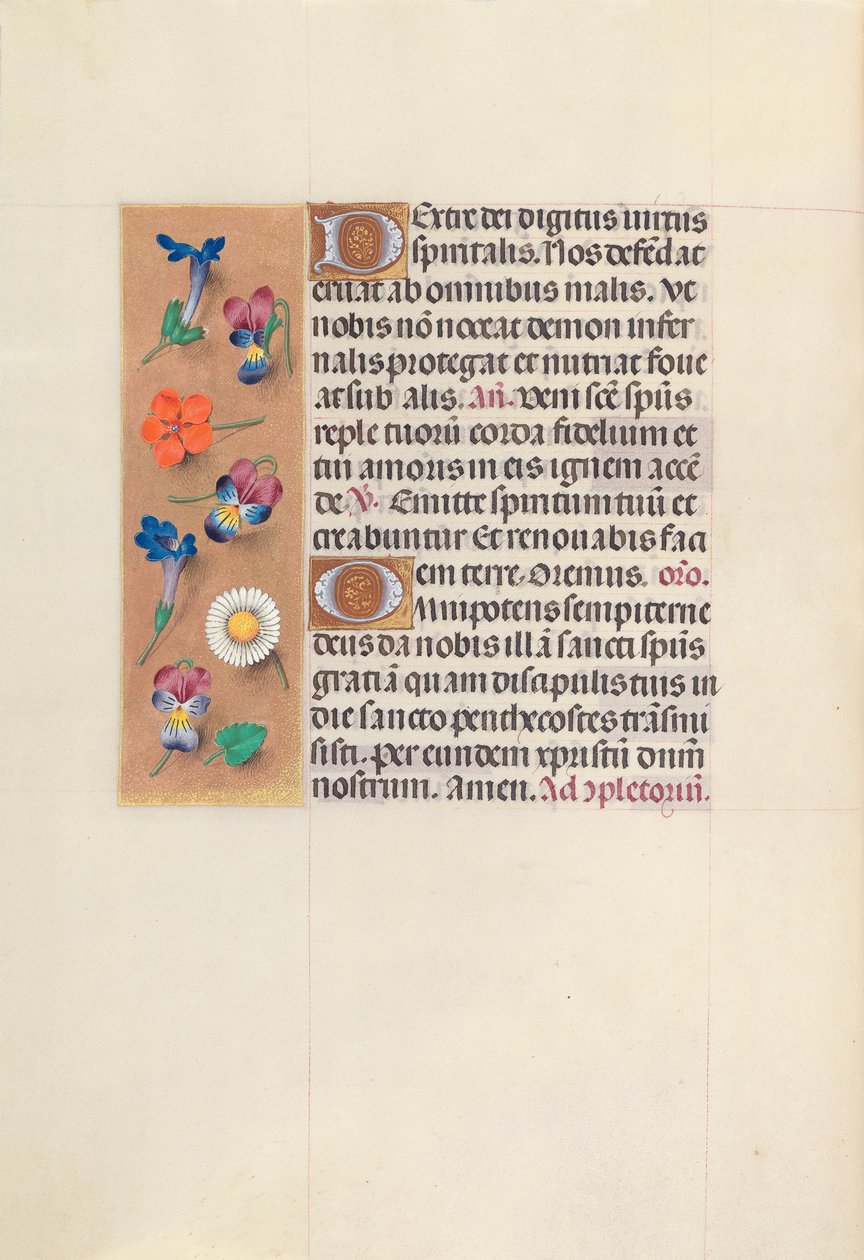 Dextre dei digitus uirtus
spiritalis. Nos defēdat
eruat ab omnibus malis. Vt
nobis nō noceat demon infer
nalis protegat et nutriat foue
at sub alis. Añ. Veni scē spūs
reple tuorū corda fidelium et
tui amoris in eis ignem accē
de. V̄. Emitte spiritum tuū et
creabuntur Et renouabis faci
em terre. Oremus. orō.
Omnipotens sempiterne
deus da nobis illā sancti spūs
gratiā quam discipulis tuis in
die sancto penthecostes trāsmi
sisti. per eundem xpristū dnm̄
nostrum. Amen. Ad ɔpletoriū.